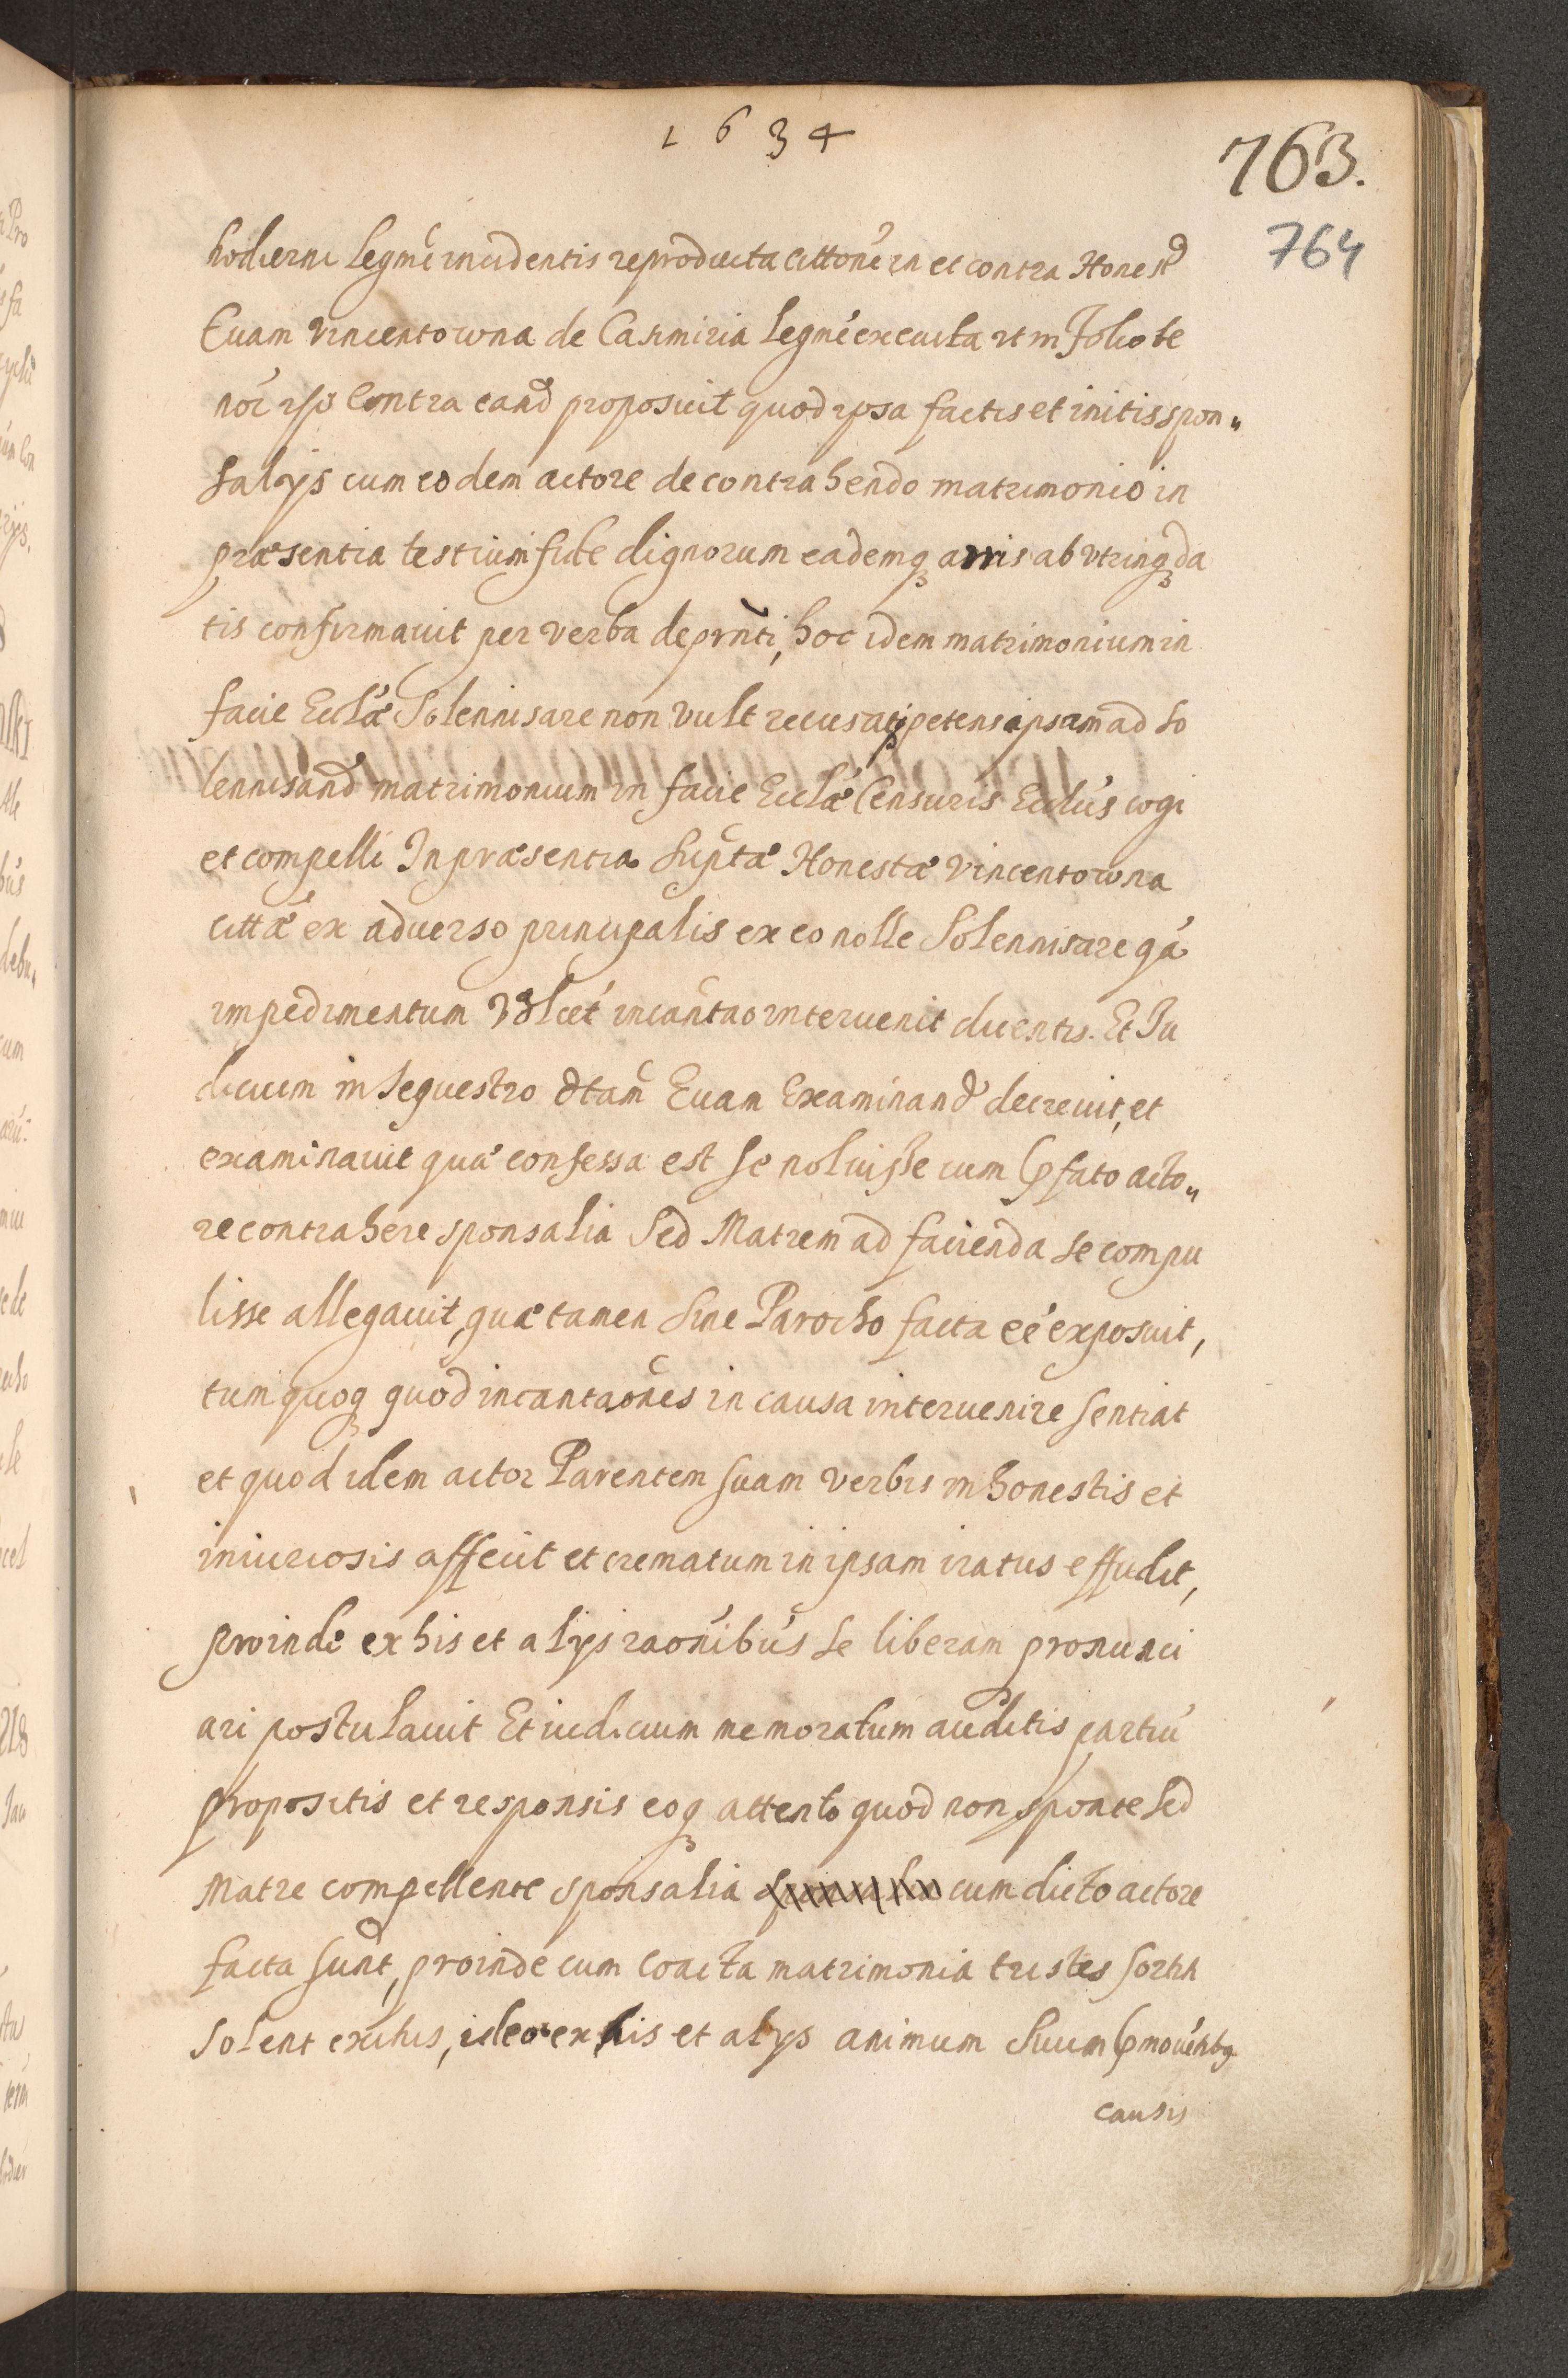 1634
763.
764
hodierni legmé incidentis reproducta cittóne in et contra Honestã
Euam Vincentowna de Casimiria legmé executa et in Foliote
nore ipso Contra eand proposuit quod ipsa factis et initis spon„
salijs cum eodem actore de contrahendo matrimonio in
præsentia testium fide dignorum eademq arris ab vtrinq da
tis confirmauit per verba de prnti, hoc idem matrimonium in
facie Ecclæ Solennisare non vult recusatq petens ipsam ad so
lennisand matrimonium in facie Ecclæ Censuris Ecclüs cogi
et compelli In præsentia Suptæ Honestæ Vincentowna
cittæ ex aduerso principalis ex eo nolle Solennisare qá
impedimentum vdlcet incantao interuenit dicentis. Et Iu
dicium in Sequestro dtam Euam Examinand decreuit, et
examinauit quæ confessa est se noluisse cum pfato acto„
re contrahere sponsalia Sed Matrem ad facienda se compu
lisse allegauit, quæ tamen Sine Parocho facta eé exposuit,
tum quoq quod incantaones in causa interuenire sentiat
et quod idem actor Parentem suam verbis inhonestis et
iniuriosis affecit et crematum in ipsam iratus effudit,
proinde ex his et alijs raonibus se liberam pronunci
ari postulauit Et iudicium memoratum auditis partiu
propositis et responsis eoq attento quod non sponte sed
Matre compellente sponsalia cum dicto actore
facta sunt, proinde cum Coacta matrimonia tristes sortiri
solent exitus, ideo ex his et alijs animum Suum pmouentbq
causis